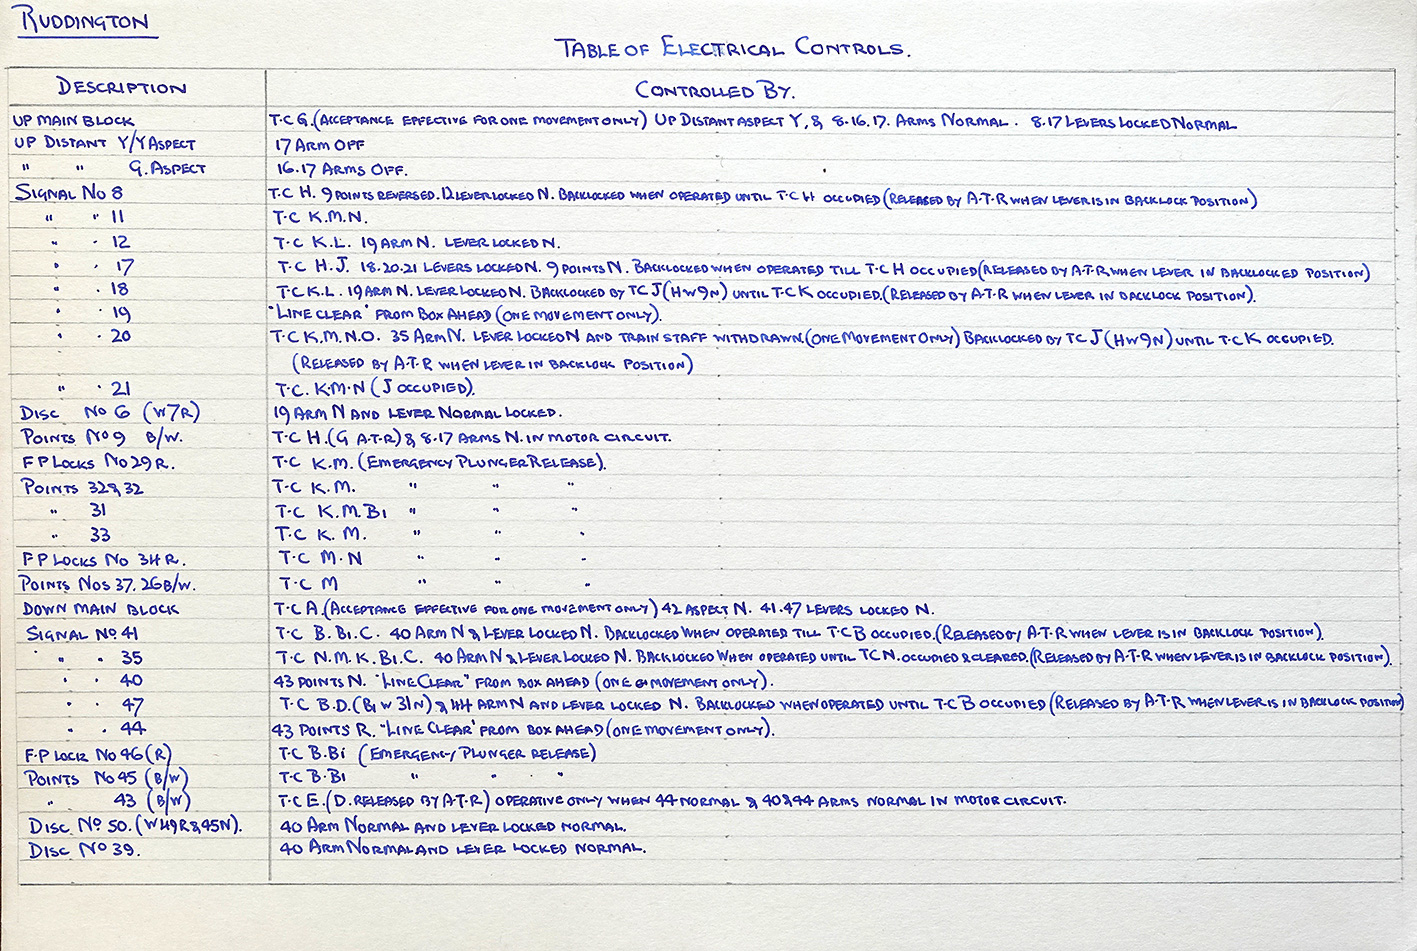 RUDDINGTON
TABLE OF ELECTRICAL CONTROLS.
DESCRIPTION CONTROLLED BY.
UP MAIN BLOCK T·C G.(ACCEPTANCE EFFECTIVE FOR ONE MOVEMENT ONLY) UP DISTANT ASPECT Y, & 8·16.17. ARMS NORMAL. 8·17 LEVERS LOCKED NORMAL
UP DISTANT Y/Y ASPECT 17 ARM OFF
" " G. ASPECT 16.17 ARMS OFF.
SIGNAL NO 8 T·C H. 9 POINTS REVERSED. 12 LEVER LOCKED N. BACKLOCKED WHEN OPERATED UNTIL T·C H OCCUPIED (RELEASED BY A·T·R WHEN LEVER IS IN BACKLOCK POSITION)
" " 11 T·C K.M.N.
" " 12 T·C K.L. 19 ARM N. LEVER LOCKED N.
" " 17 T·C H.J. 18.20.21 LEVERS LOCKED N. 9 POINTS N. BACKLOCKED WHEN OPERATED TILL T·C H OCCUPIED (RELEASED BY A·T·R WHEN LEVER IN BACKLOCKED POSITION)
" " 18 T·C K.L. 19 ARM N. LEVER LOCKED N. BACKLOCKED BY TC J (H W 9 N) UNTIL T·C K OCCUPIED.(RELEASED BY A·T·R WHEN LEVER IN BACKLOCK POSITION).
" " 19 "LINE CLEAR" FROM BOX AHEAD (ONE MOVEMENT ONLY).
" " 20 T·C K.M.N.O. 35 ARM N. LEVER LOCKED N AND TRAIN STAFF WITHDRAWN.(ONE MOVEMENT ONLY) BACKLOCKED BY TC J (H W 9 N) UNTIL T·C K OCCUPIED.
(RELEASED BY A·T·R WHEN LEVER IN BACKLOCK POSITION)
" " 21 T·C. K.M·N (J OCCUPIED).
DISC NO 6 (W7R) 19 ARM N AND LEVER NORMAL LOCKED.
POINTS NO 9 B/W. T·C H.(G A·T·R) & 8·17 ARMS N. IN MOTOR CIRCUIT.
F P LOCKS NO 29 R. T·C K.M. (EMERGENCY PLUNGER RELEASE).
POINTS 32 & 32 T·C K.M. " " "
" 31 T·C K.M.B1 " " "
" 33 T·C K.M. " " "
F P LOCKS NO 34 R. T·C M·N " " "
POINTS NOS 37. 26 B/W. T·C M " " "
DOWN MAIN BLOCK T·C A.(ACCEPTANCE EFFECTIVE FOR ONE MOVEMENT ONLY) 42 ASPECT N. 41.47 LEVERS LOCKED N.
SIGNAL NO 41 T·C B.B1.C. 40 ARM N & LEVER LOCKED N. BACKLOCKED WHEN OPERATED TILL T·C B OCCUPIED.(RELEASED BY A·T·R WHEN LEVER IS IN BACKLOCK POSITION).
" " 35 T·C N.M.K.B1.C. 40 ARM N & LEVER LOCKED N. BACKLOCKED WHEN OPERATED UNTIL TC N. OCCUPIED & CLEARED.(RELEASED BY A·T·R WHEN LEVER IS IN BACKLOCK POSITION).
" " 40 43 POINTS N. "LINE CLEAR" FROM BOX AHEAD (ONE MOVEMENT ONLY).
" " 47 T·C B.D.(B1 W 31 N) & 44 ARM N AND LEVER LOCKED N. BACKLOCKED WHEN OPERATED UNTIL T·C B OCCUPIED (RELEASED BY A·T·R WHEN LEVER IS IN BACKLOCK POSITION)
" " 44 43 POINTS R. "LINE CLEAR" FROM BOX AHEAD (ONE MOVEMENT ONLY).
F·P LOCK NO 46 (R) T·C B.B1 (EMERGENCY PLUNGER RELEASE)
POINTS NO 45 (B/W) T·C B·B1 " " "
" 43 (B/W) T·C E.(D. RELEASED BY A·T·R) OPERATIVE ONLY WHEN 44 NORMAL & 40 & 44 ARMS NORMAL IN MOTOR CIRCUIT.
DISC NO 50. (W 49 R & 45 N). 40 ARM NORMAL AND LEVER LOCKED NORMAL.
DISC NO 39. 40 ARM NORMAL AND LEVER LOCKED NORMAL.